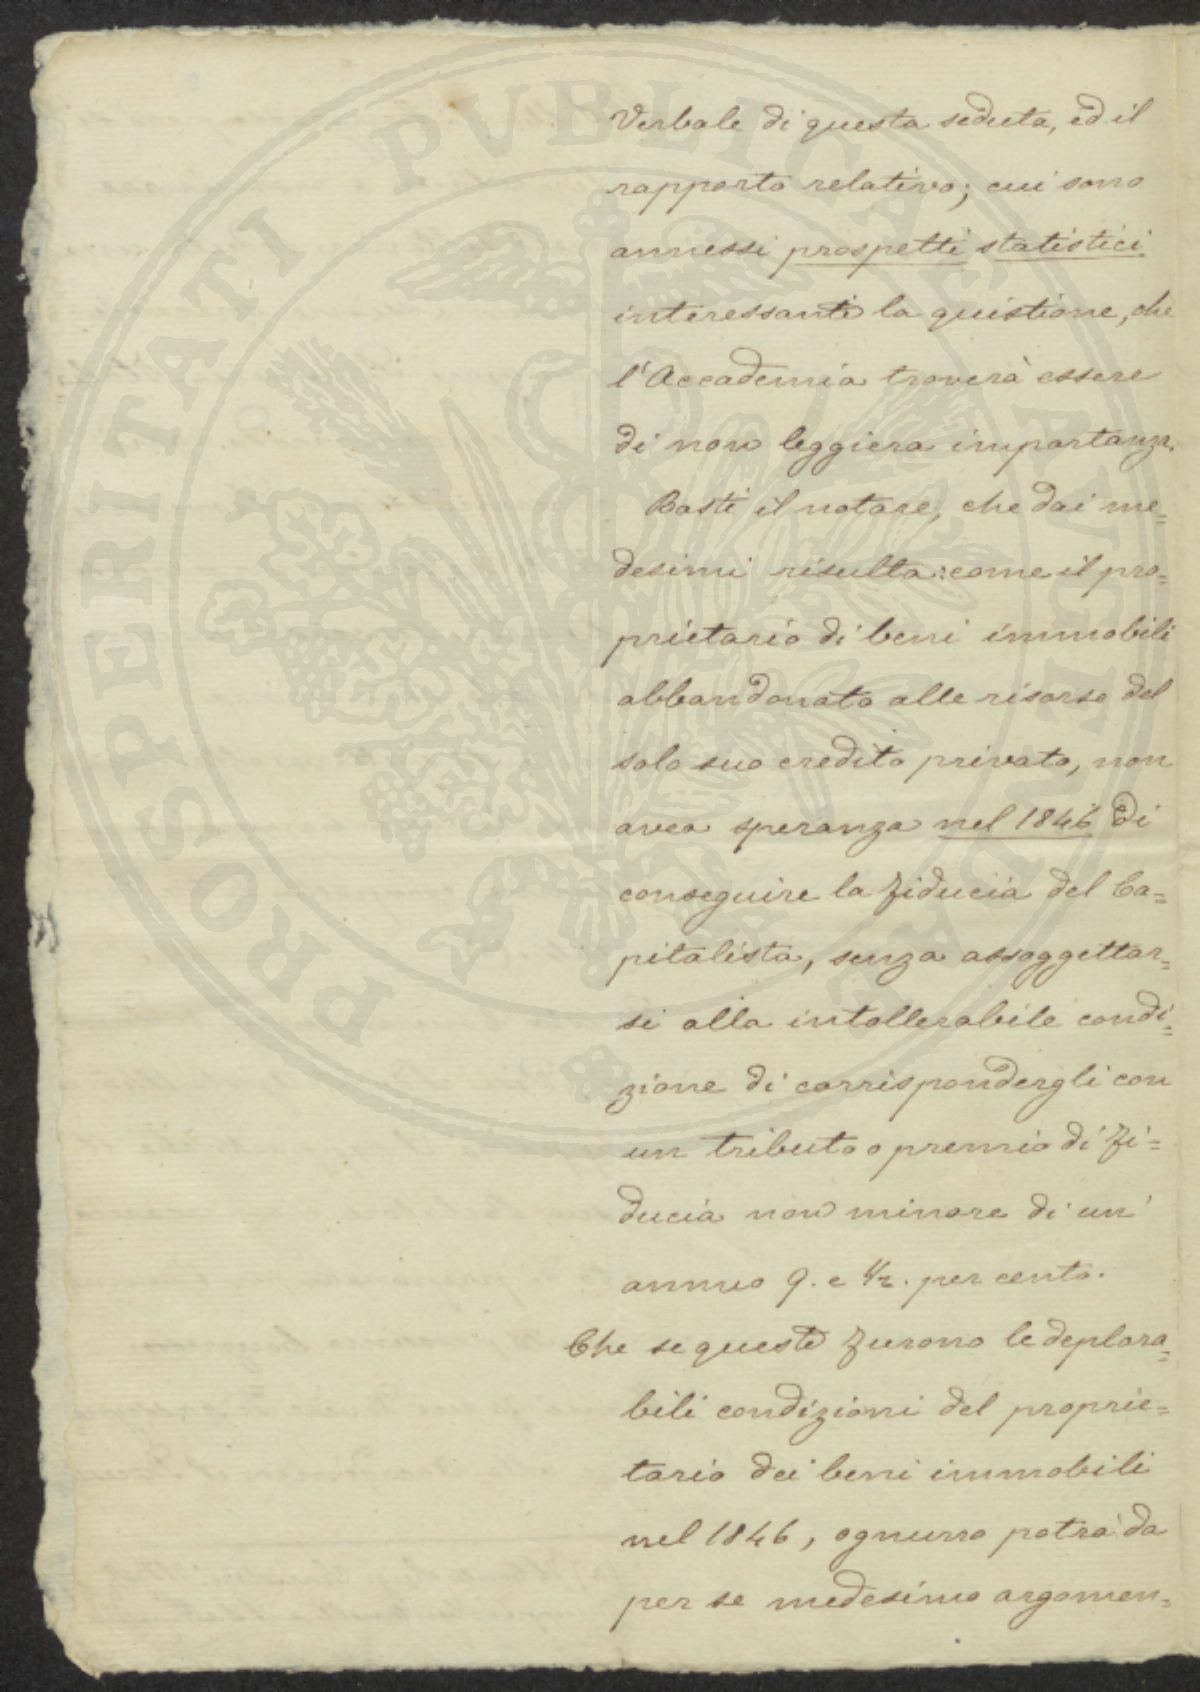 Verbale di questa seduta, ed il
rapporto relativo; cui sono
annessi prospetti statistici
interessanti la quistione, che
l'Accademia troverà essere
di non leggiera importanza.
Basti il notare, che dai me=
desimi risulta: come il pro=
prietario di beni immobili
abbandonato alle risorse del
solo suo credito privato, non
avea speranza nel 1846 di
conseguire la fiducia del Ca=
pitalista, senza assoggettar=
si alla intollerabile condi=
zione di corrispondergli con
un tributo o premio di fi=
ducia non minore di un'
annuo 9. e 1/2. per cento.
Che se queste furono le deplora=
bili condizioni del proprie=
tario dei beni immobili
nel 1846, ognuno potrà da
per se medesimo argomen=
PROSPERITATI PVBLICAE AVGENDAE